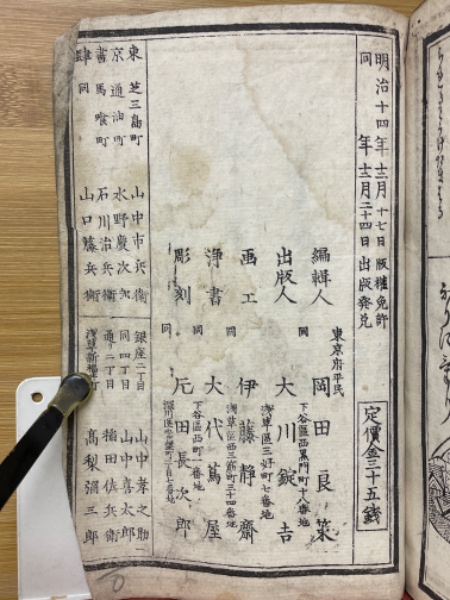 明治十四年十二月十七日版權免許
同年十二月二十四日出版發兌
定價金三十五錢
東京府平民
編輯人 岡田良策
下谷區西黒門町十八番地
出版人 同 大川錠吉
淺草區三好町七番地
画工 同 伊藤静齋
淺草區西三筋町三十四番地
浄書 同 大代蔦屋
下谷區西町一番地
彫刻 同 片田長次郎
深川區
東京書肆
芝三島町 山中市兵衛
通油町 水野慶次郎
馬喰町 石川治兵衛
同 山口藤兵衛
銀座二丁目 山中孝之助
同四丁目 山中喜太郎
通二丁目 稲田佐兵衛
淺草新 町 高梨彌三郎